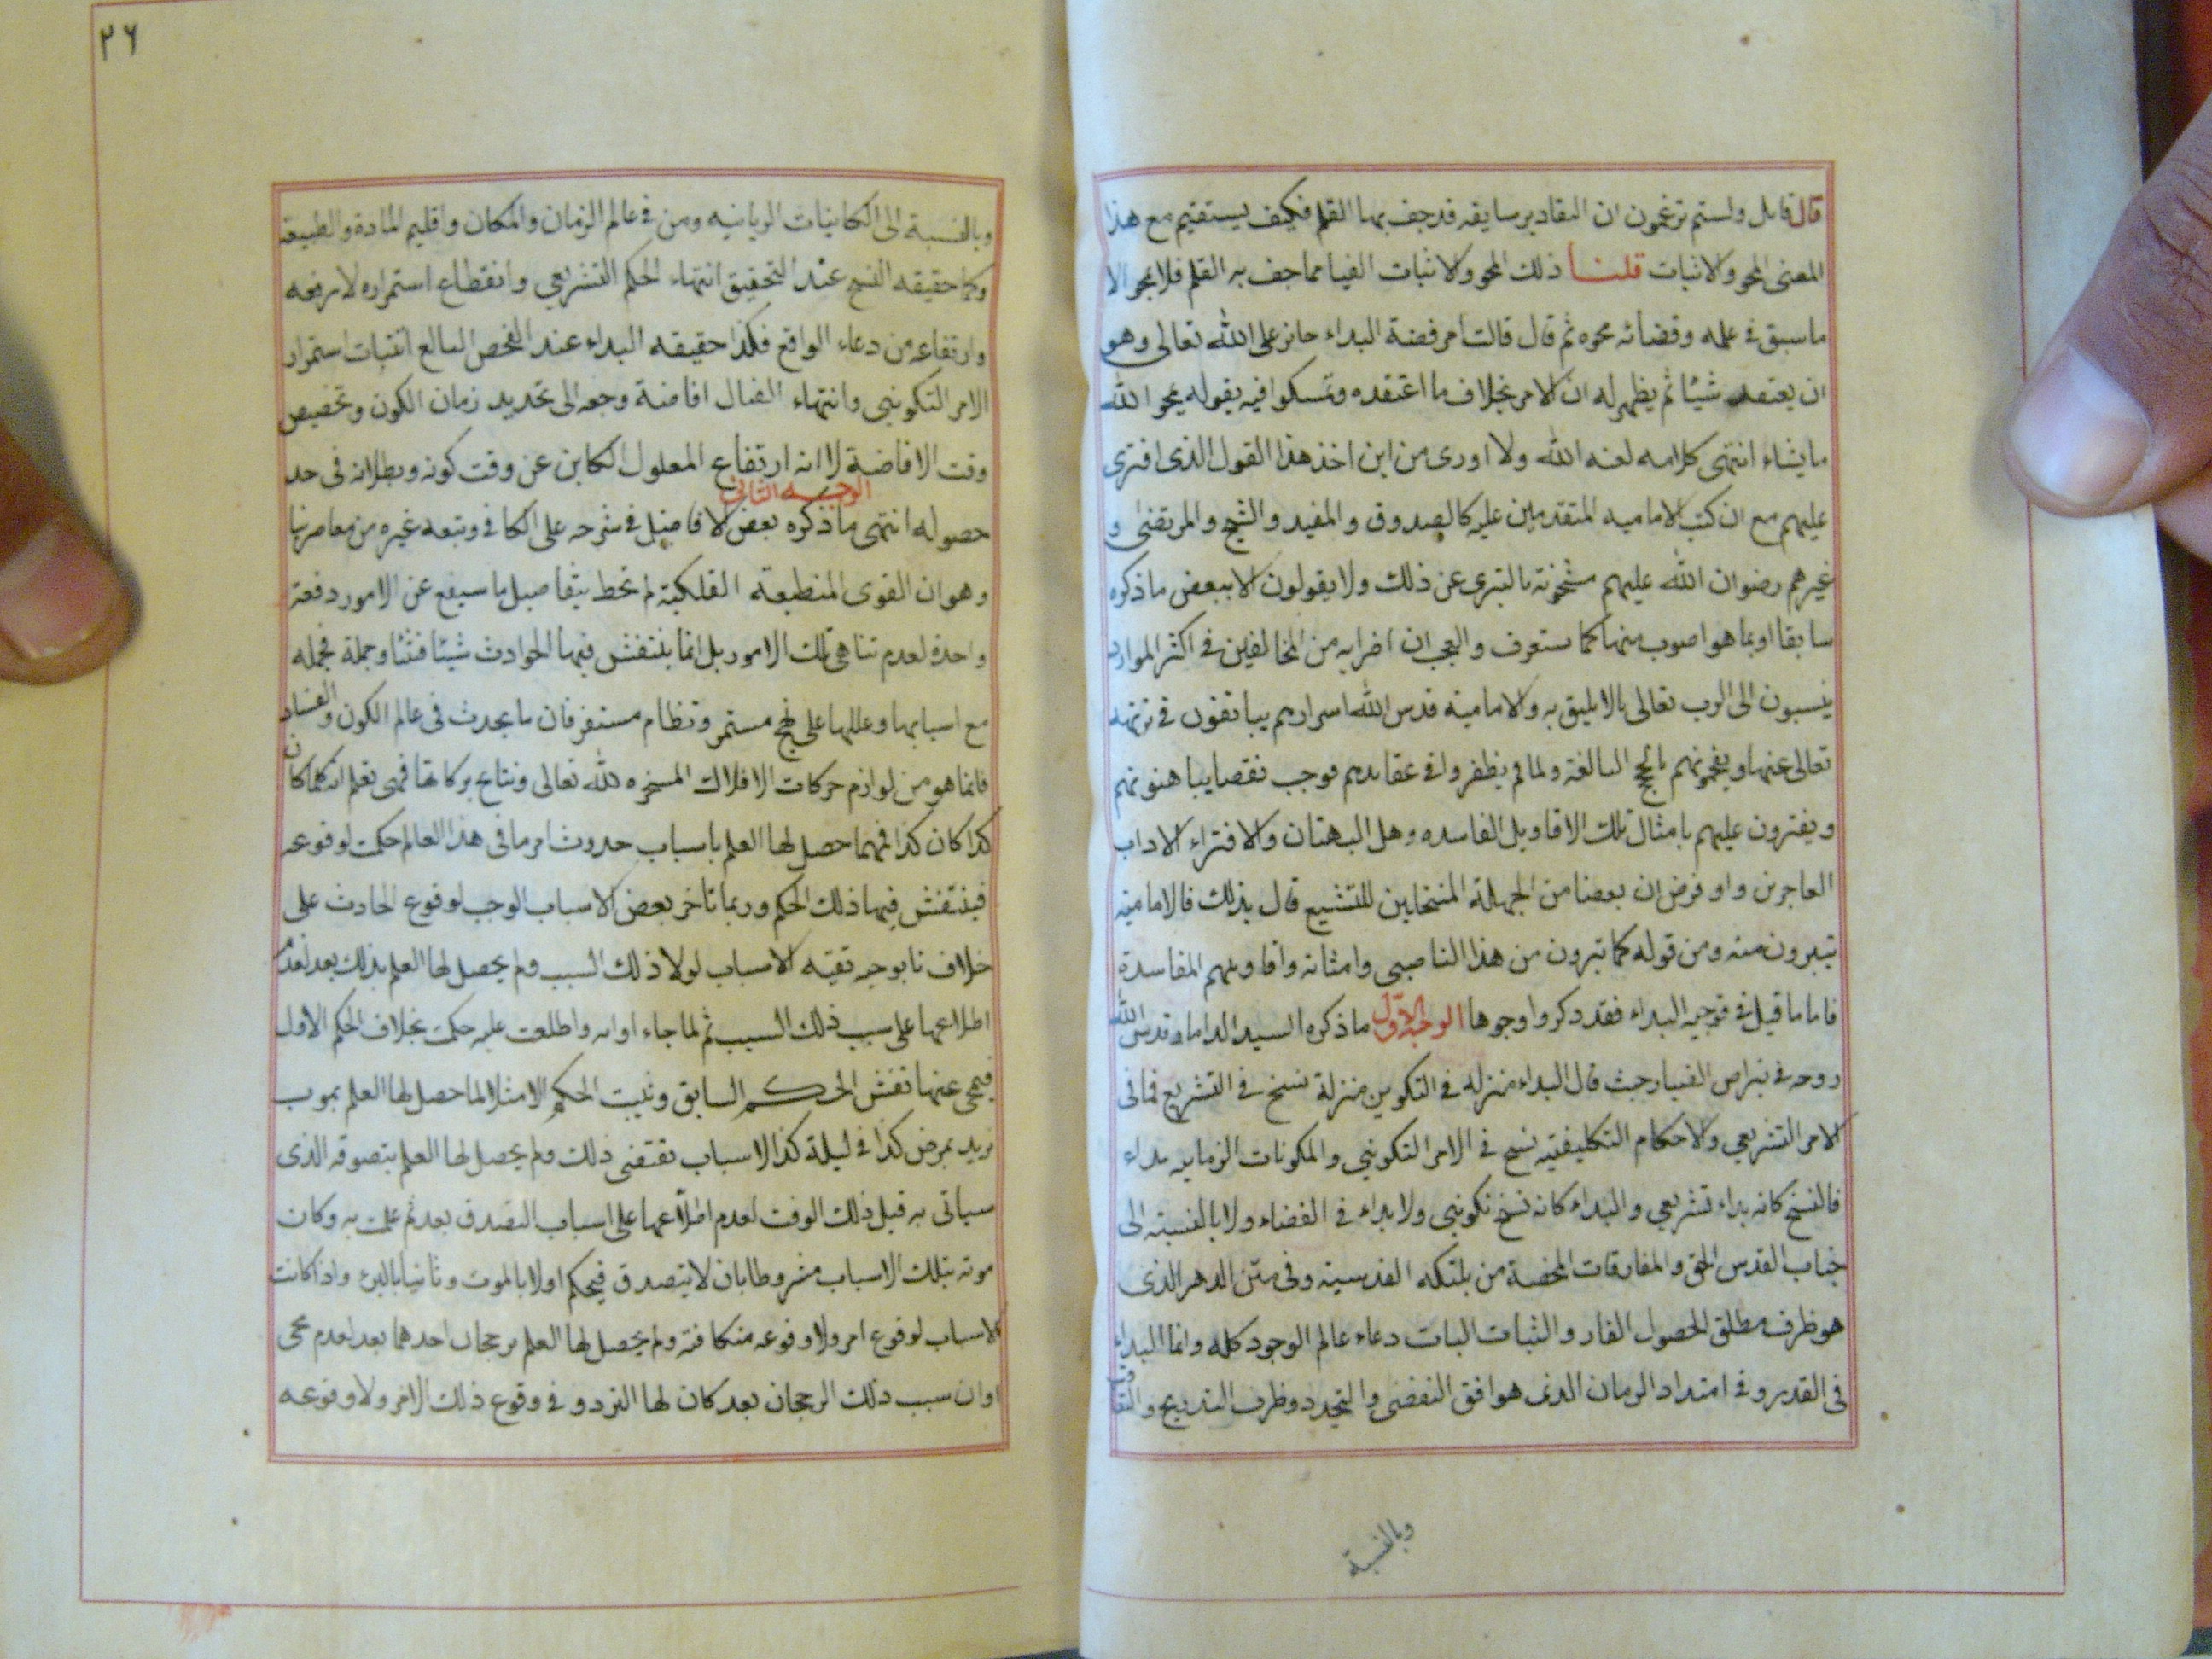 قال قايل ولستم تزعمون ان التقادير سابقه قد جف بها القلم فكيف يستقيم مع هذا
المعنى المحو والاثبات قلنا ذلك المحو والاثبات ايضا مما جف به القلم فلا يمحو الا
ما سبق فى علمه وقضائه محوه ثم قال قالت الرفضة البداء جائز على الله تعالى وهو
ان يعتقد شيئا ثم يظهر له ان الامر بخلاف ما اعتقده وتمسكوا فيه بقوله يمحو الله
ما يشاء انتهى كلامه لعنه الله ولا ادرى من اين اخذ هذا القول الذى افترى
عليهم مع ان كتب الاماميه المتقدمين عليه كالصدوق والمفيد والشيخ والمرتضى و
غيرهم رضوان الله عليهم مشحونة بالتبرى عن ذلك ولا يقولون الا ببعض ما ذكره
سابقا او بما هو اصوب منها كما ستعرف والعجب ان اضرابه من المخالفين فى اكثر الموارد
ينسبون الى الرب تعالى ما لا يليق به والامامية قدس الله اسرارهم يبالغون فى تنزيهه
تعالى عنها ويفحمونهم بالحجج البالغة ولما لم يظفروا فى عقايدهم بوجب نقصا يباهتونهم
ويفترون عليهم بامثال تلك الاقاويل الفاسده وهل البهتان والافتراء الا داب
العاجزين ولو فرض ان بعضا من الجهلة المنتحلين للتشيع قال بذلك فالامامية
يتبرون منه ومن قوله كما يتبرون من هذا الناصبى وامثاله واقاويلهم الفاسدة
فاما ما قيل فى توجيه البداء فقد ذكروا وجوها الوجه الاول ما ذكره السيد الداماد قدس الله
روحه فى نبراس الضياء حيث قال البداء منزلته فى التكوين منزلة نسخ فى التشريع فما فى
الامر التشريعي والاحكام التكليفيه نسخ فى الامر التكوينى والمكونات الزمانيه بداء
فالنسخ كانه بداء تشريعي والبداء كانه نسخ تكوينى ولا بداء فى القضاء ولا بالنسبة الى
جناب القدس الحق والمفارقات المحضة من ملئكه القدسية وفى متن الدهر الذى
هو ظرف مطلق الحصول القار والثبات البات دعاء عالم الوجود كله وانما البداء
فى القدر وفى امتداد الزمان الذى هو افق التقضى والتجدد وظرف التدريج والتعاقب
وبالنسبة
٢٦
وبالنسبة الى الكاينات الزمانيه ومن فى عالم الزمان والمكان واقليم المادة والطبيعة
وكما حقيقه النسخ عند التحقيق انتهاء الحكم التشريعي وانقطاع استمراره لا رفعه
وارتفاعه من دعاء الواقع فكذا حقيقه البداء عند الفحص البالغ انبتات استمرار
الامر التكوينى وانتهاء اتصال افاضة وجعه الى تحديد زمان الكون وتخصيص
وقت الافاضة لا انه ارتفاع المعلول الكاين عن وقت كونه وبطلانه فى حد
حصوله انتهى الوجه الثانى ما ذكره بعض الافاضل فى شرحه على الكافى وتبعه غيره من معاصرينا
وهو ان القوى المنطبعة الفلكية لم تحط بتفاصيل ما سيقع عن الامور دفعة
واحدة لعدم تناهى تلك الامور بل انما ينتقش فيها الحوادث شيئا فشيئا وجملة فجمله
مع اسبابها وعللها على نهج مستمر ونظام مستقر فان ما يحدث فى عالم الكون والفساد
فانما هو من لوازم حركات الافلاك المسخره لله تعالى ونتايج بركاتها فهى تعلم انه كلما كان
كذا كان كذا فمهما حصل لها العلم باسباب حدوث امر ما فى هذا العالم حكمت لوقوعه
فينتقش فيها ذلك الحكم وربما تاخر بعض الاسباب الموجب لوقوع الحادث على
خلاف ما يوجبه بقيه الاسباب لولا ذلك السبب ولم يحصل لها العلم بذلك بعد لعدم
اطلاعها على سبب ذلك السبب ثم لما جاء اوانه واطلعت عليه حكمت بخلاف الحكم الاول
فيمحى عنها نقش الحكم السابق ويثبت الحكم الا مثلا لما حصل لها العلم بموت
زيد بمرض كذا فى ليلة كذا لاسباب تقتضى ذلك ولم يحصل لها العلم بتصدقه الذى
سياتى به قبل ذلك الوقت لعدم اطلاعها على اسباب التصدق بعد ثم علمت به وكان
موته بتلك الاسباب مشروطا بان لا يتصدق فيحكم اولا بالموت وثانيا بالبرء واذا كانت
الاسباب لوقوع امر ولا وقوعه متكافئة ولم يحصل لها العلم برجحان احدهما بعد لعدم مجى
اوان سبب ذلك الرجحان بعد كان لها التردد فى وقوع ذلك الامر ولا وقوعه